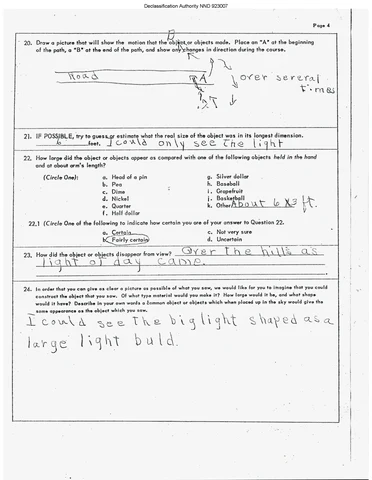 Declassification Authority NND 923007
Page 4
20. Draw a picture that will show the motion that the object or objects made. Place an "A" at the beginning
of the path, a "B" at the end of the path, and show any changes in direction during the course.
B
Road
A
over several
times
21. IF POSSIBLE, try to guess or estimate what the real size of the object was in its longest dimension.
6 feet. I could only see the light
22. How large did the object or objects appear as compared with one of the following objects held in the hand
and at about arm's length?
(Circle One): a. Head of a pin g. Silver dollar
b. Pea h. Baseball
c. Dime i. Grapefruit
d. Nickel j. Basketball
e. Quarter k. Other About 6 X 3 ft.
f. Half dollar
22.1 (Circle One of the following to indicate how certain you are of your answer to Question 22.
a. Certain c. Not very sure
b. Fairly certain d. Uncertain
23. How did the object or objects disappear from view? Over the hills as
light of day came.
24. In order that you can give as clear a picture as possible of what you saw, we would like for you to imagine that you could
construct the object that you saw. Of what type material would you make it? How large would it be, and what shape
would it have? Describe in your own words a common object or objects which when placed up in the sky would give the
same appearance as the object which you saw.
I could see the big light shaped as a
large light buld.